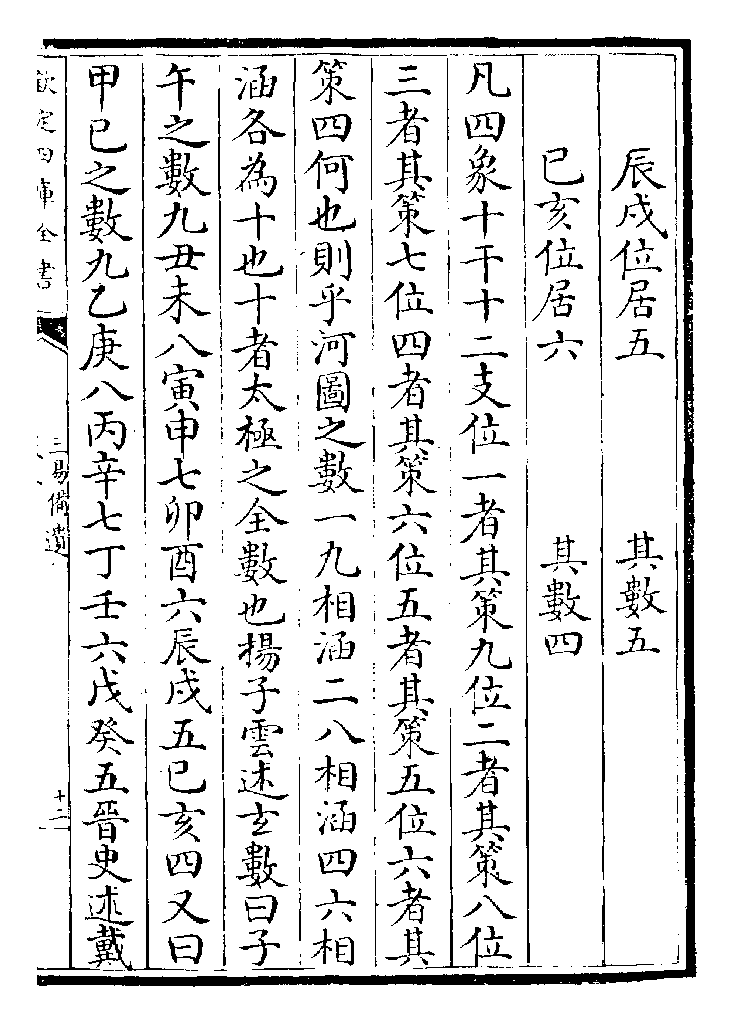 辰戌位居五　其數五
巳亥位居六　其數四
凡四象十干十二支位一者其策九位二者其策八位
三者其策七位四者其策六位五者其策五位六者其
策四何也則乎河圖之數一九相涵二八相涵四六相
涵各為十也十者太極之全數也揚子雲述玄數曰子
午之數九丑未八寅申七卯酉六辰戌五巳亥四又曰
甲己之數九乙庚八丙辛七丁壬六戊癸五晉史述戴
欽定四庫全書
三易備遺
十二